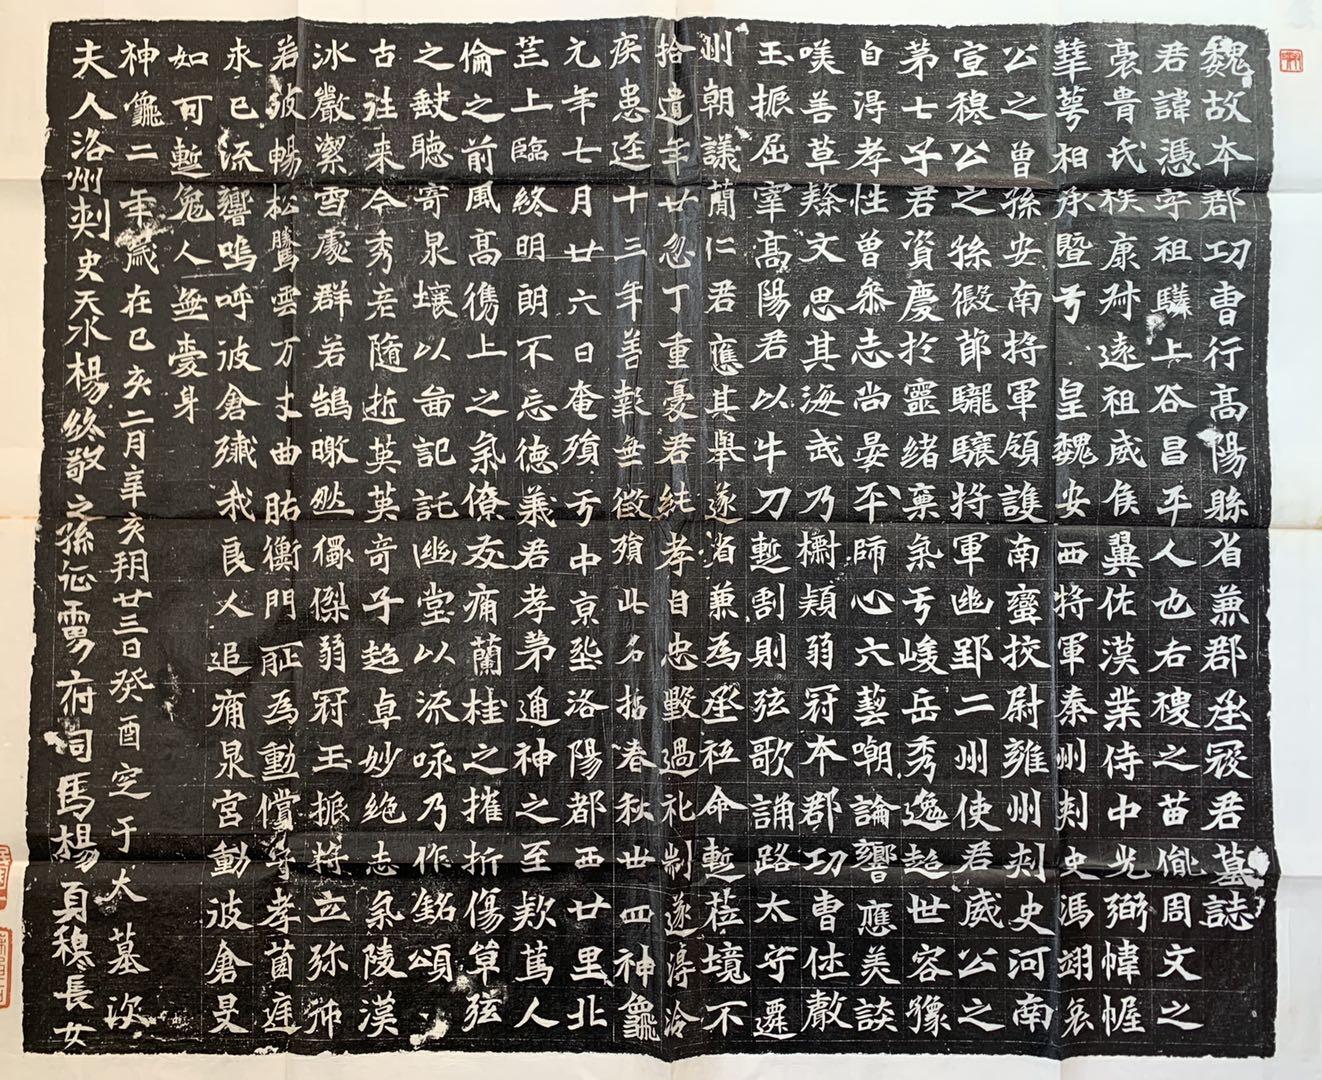 魏故本郡功曹行高陽縣省兼郡丞寇君墓誌
君諱憑字祖驎上谷昌平人也右禝之苗胤周文之
裔貴氏族康叔遠祖威侯翼佐漢業侍中光弼幃幄
華萼相承暨乎皇魏安西將軍秦州刾史馮翊哀
公之曾孫安南將軍領護南蠻挍尉雍州刾史河南
宣穆公之孫假節龍驤將軍幽郢二州使君威公之
第七子君資慶於靈緒稟氣乎峻岳秀逸超世容豫
自淂孝性曾參志尚晏平師心六藝嘲論響應美談
嘆善草𥿄文思其海武乃欟穎弱冠本郡功曹仕敷
玉振屈宰高陽君以牛刀蹔割則弦歌誦路太守遷
州朝議蕳仁君應其舉遂省兼為丞祗命蹔莅境不
拾遺年廿忽丁重憂君純孝自忠毀過礼制遂淂冷
疾患逕十三年善報無徵殯此名喆春秋卅四神龜
元年七月廿六日奄殯乎中京𡋯洛陽都西廿里北
芒上臨終明朗不忘德義君孝苐通神之至欵萬人
倫之前風高儁上之氣僚友痛蘭桂之摧折傷草弦
之𡙇聽寄泉壤以啚記託幽堂以流咏乃作銘頌
古往来今秀老隨逝英英奇子超卓妙絶志氣陵漢
冰嚴潔雪處群若鵠曒然獨傑弱冠玉振將立弥沖
若彼暢松騰雲万丈曲肱衡門耻為勳償守孝蘭庭
永已流響嗚呼彼倉殲我良人追痛泉宮動波倉旻
如可蹔免人無愛身
神龜二年歲在己亥二月辛亥朔廿三日癸酉窆于大墓次
夫人洛州刾史天水楊終敬之孫征虜府司馬楊貞穆長女